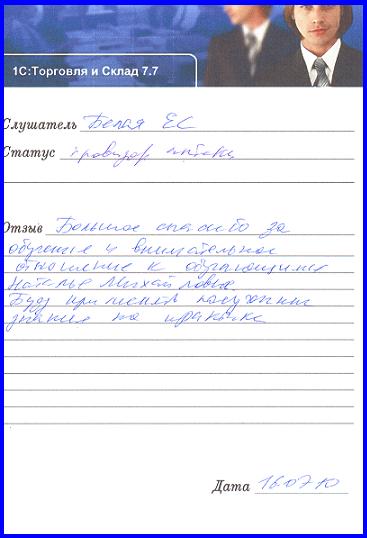 1С:Торговля и Склад 7.7
Слушатель Белая ЕС
Статус провизор аптеки
Отзыв Большое спасибо за
обучение и внимательное
отношение к обучающимся
Наталье Михайловне.
Буду применять полученные
знания на практике
Дата 16.07.10